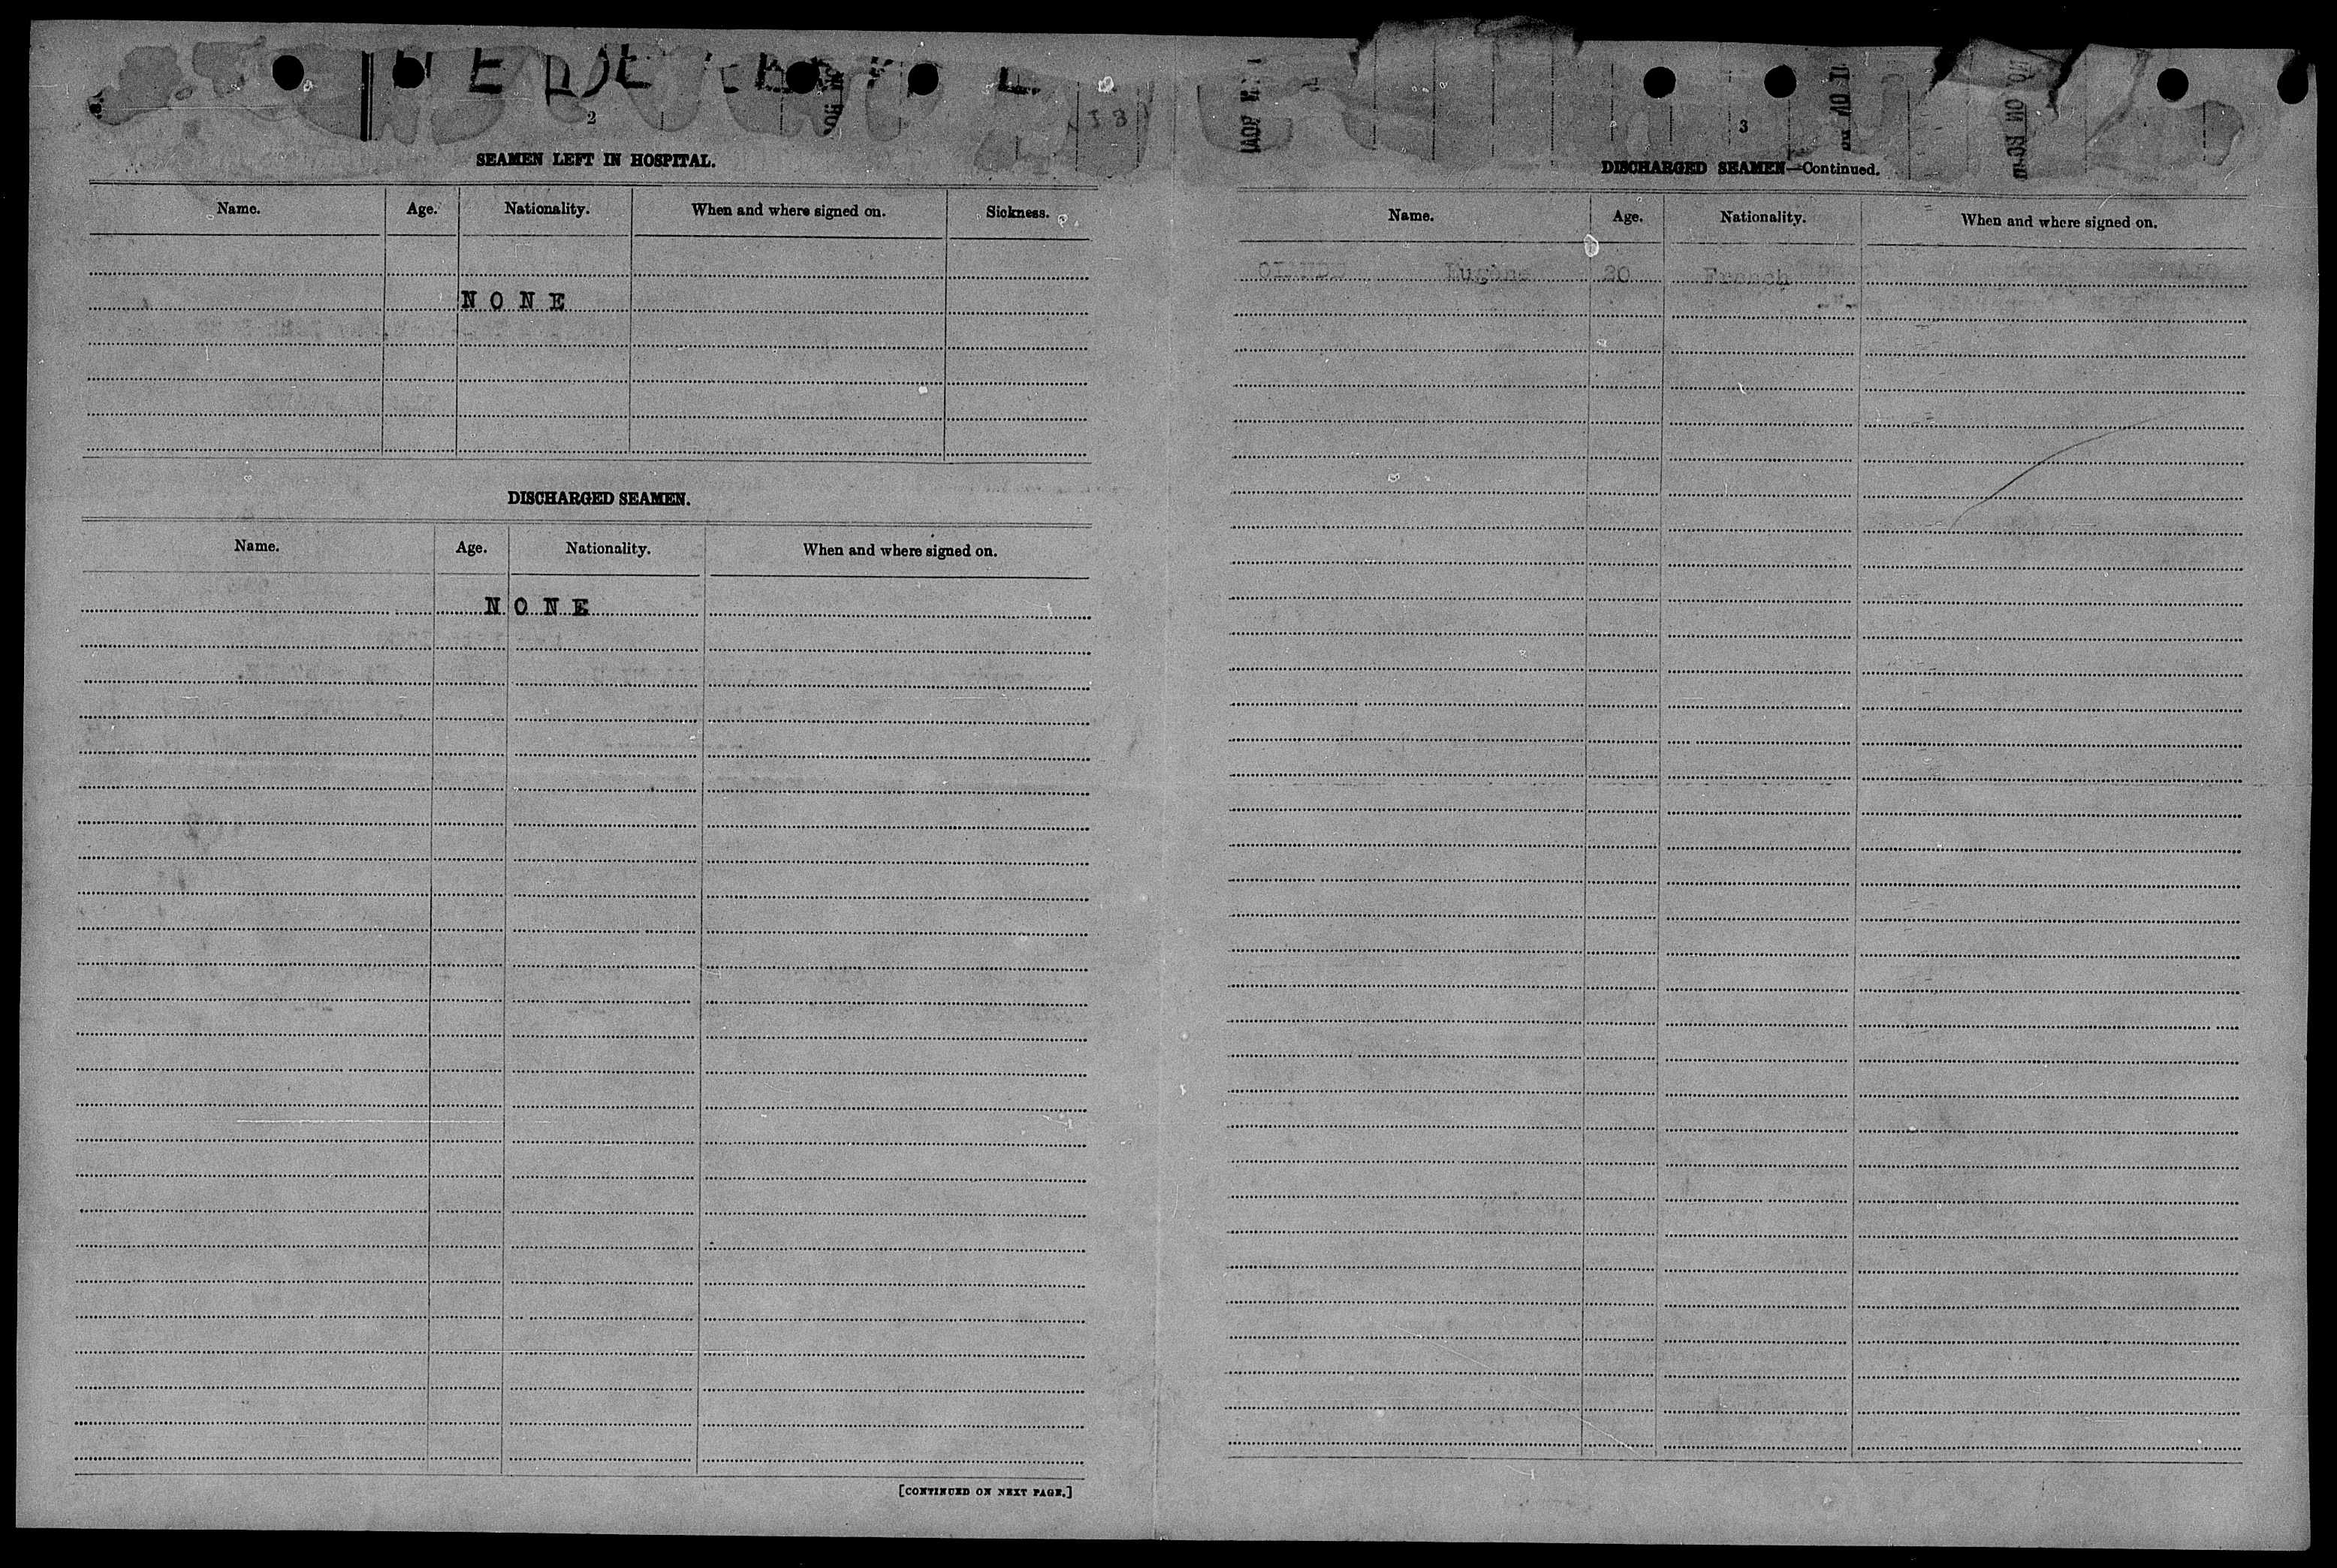 2
SEAMEN LEFT IN HOSPITAL.
Name. Age. Nationality. When and where signed on. Sickness.
NONE
DISCHARGED SEAMEN.
Name. Age. Nationality. When and where signed on.
NONE
[CONTINUED ON NEXT PAGE.]
3
DISCHARGED SEAMEN—Continued.
Name. Age. Nationality. When and where signed on.
Eugène 20 French